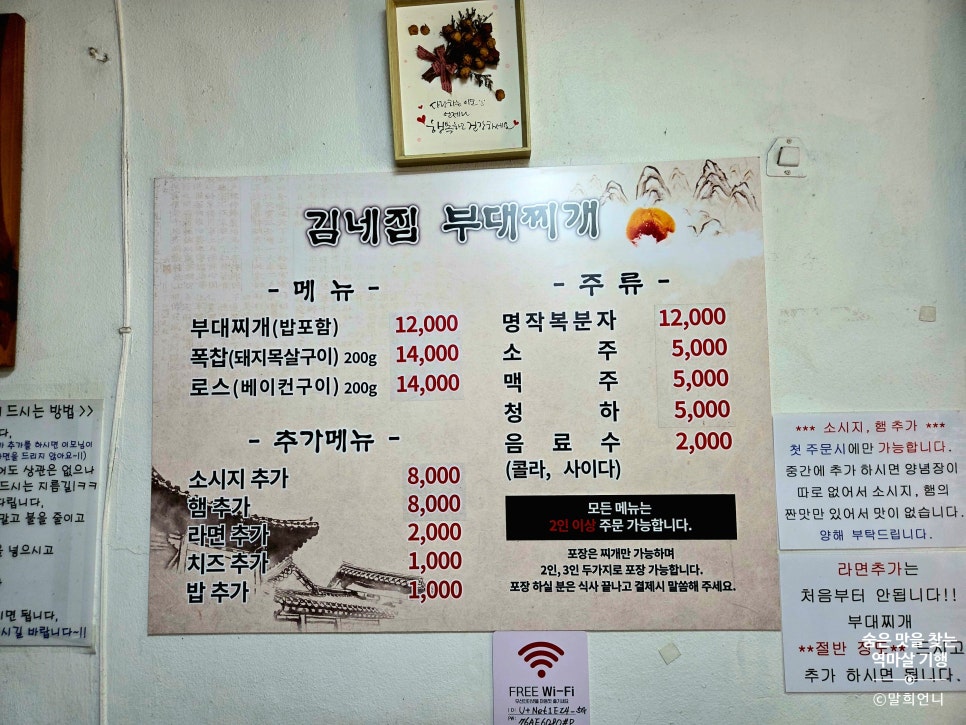 사랑하는 이모님
언제나
행복하고 건강하세요
김네집 부대찌개
- 메 뉴 -
부대찌개(밥포함) 12,000
폭찹(돼지목살구이) 200g 14,000
로스(베이컨구이) 200g 14,000
- 추가메뉴 -
소시지 추가 8,000
햄 추가 8,000
라면 추가 2,000
치즈 추가 1,000
밥 추가 1,000
- 주 류 -
명작복분자 12,000
소 주 5,000
맥 주 5,000
청 하 5,000
음 료 수 2,000
(콜라, 사이다)
모든 메뉴는
2인 이상 주문 가능합니다.
포장은 찌개만 가능하며
2인, 3인 두가지로 포장 가능합니다.
포장 하실 분은 식사 끝나고 결제시 말씀해 주세요.
드시는 방법 >>
다.
추가를 하시면 이모님이
라면을 드리지 않아요~!!)
어도 상관은 없으나
드시는 지름길!ㅋㅋ
다립니다.
말고 불을 줄이고
을 넣으시고
시면 됩니다.
시길 바랍니다~!!
*** 소시지, 햄 추가 ***
첫 주문시에만 가능합니다.
중간에 추가 하시면 양념장이
따로 없어서 소시지, 햄의
짠맛만 있어서 맛이 없습니다.
양해 부탁드립니다.
라면추가는
처음부터 안됩니다!!
부대찌개
**절반 정도** 드시고
추가 하시면 됩니다.
FREE Wi-Fi
ID: U+Net1E24_5G
PW:
숨은 맛을 찾는
역마살 기행
©말희언니